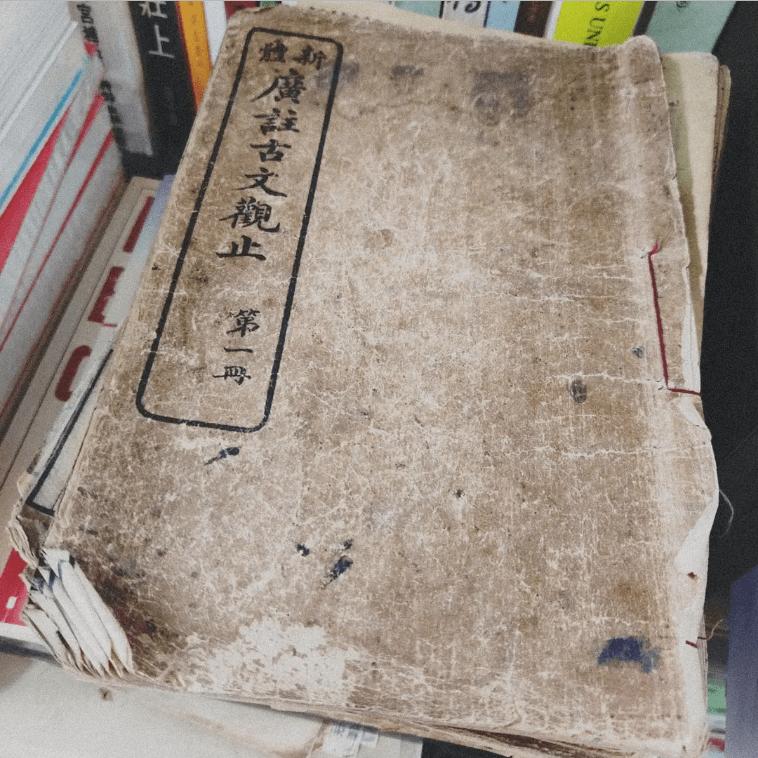 新體
廣註古文觀止
第一冊
上
S UN